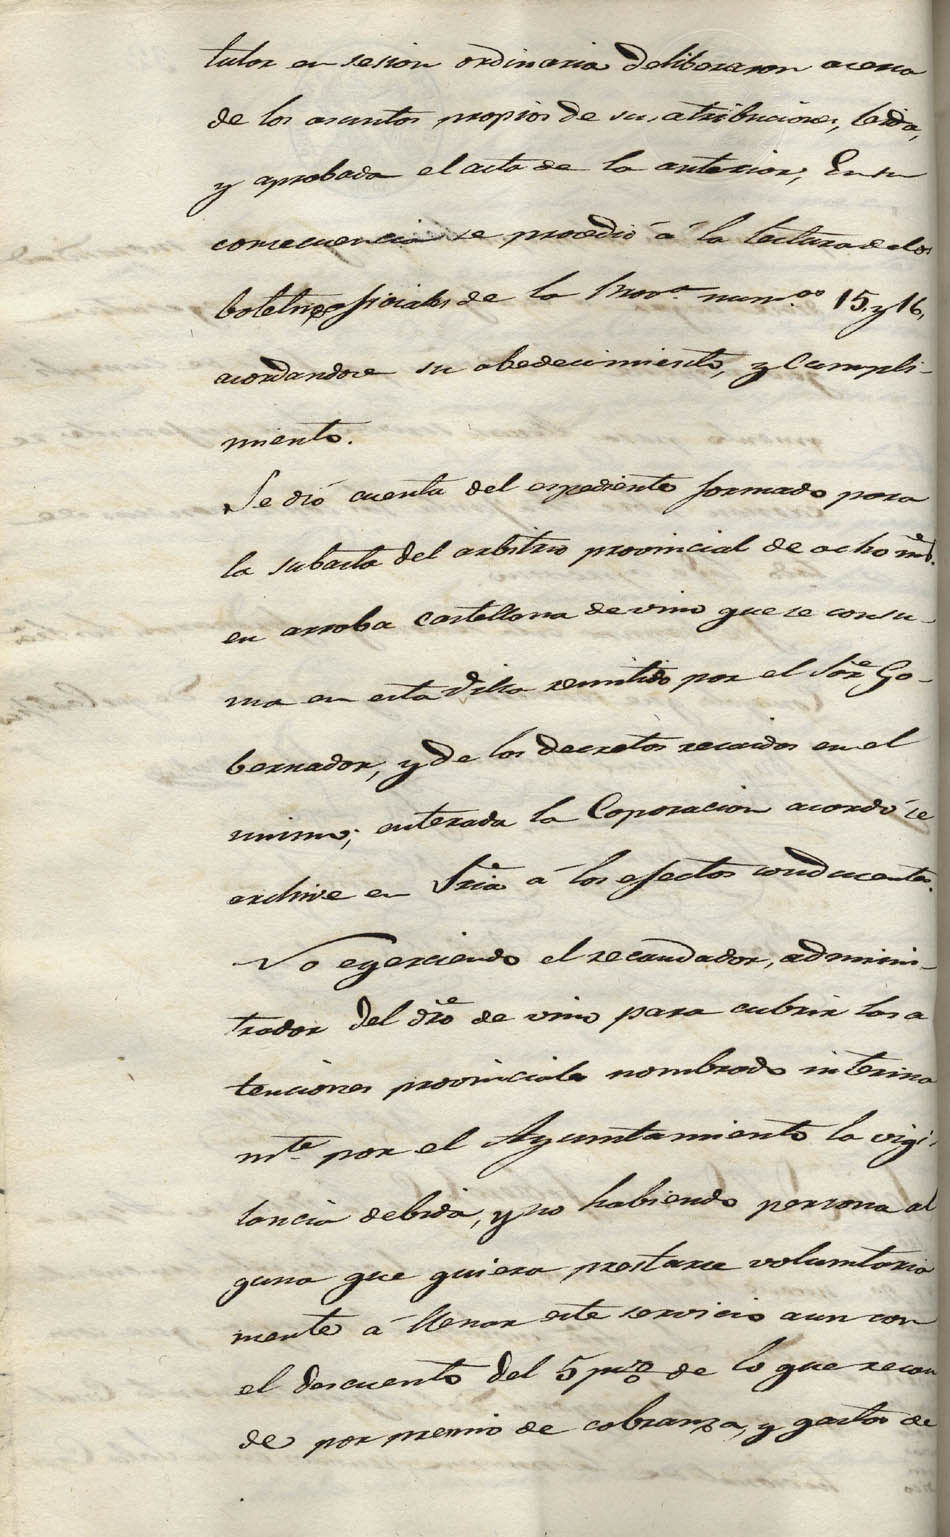 tular en sesion ordinaria deliberaron acerca
de los asuntos propios de sus atribuciones, leida,
y aprobada el acta de la anterior, En su
consecuencia se procedió á la lectura de los
boletines oficiales de la Prov.ª num.os 15. y 16,
acordandose su obedecimiento, y Cumpli-
miento.
Se dió cuenta del espediente formado para
la subasta del arbitrio provincial de ocho mrs.
en arroba castellana de vino que se consu-
ma en esta Villa remitido por el Sor Go-
bernador, y de los decretos recaidos en el
mismo; enterada la Coporacion acordó se
archive en Sria á los efectos conducentes.
No egerciendo el recaudador, adminis-
trador del dro de vino para cubrir las a
tenciones provinciales nombrado interina
mte. por el Ayuntamiento la vigi-
lancia debida, y no habiendo persona al
guna que quiera prestarse voluntaria
mente á llenar este servicio aun con
el descuento del 5 p% de lo que recau
de por premio de cobranza, y gastos de